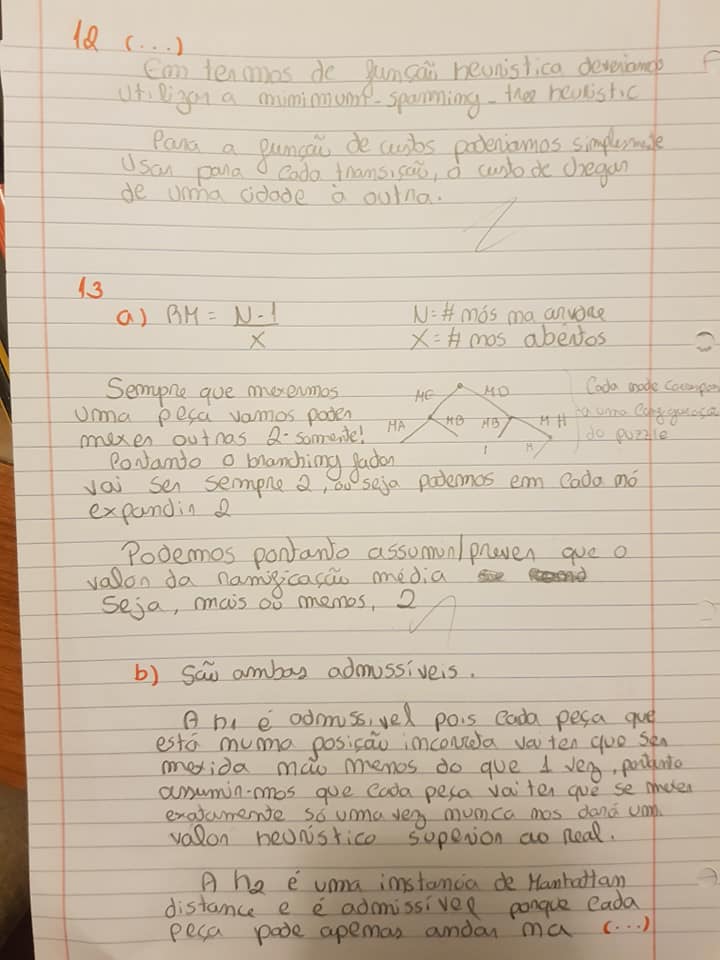 12 (...)
Em termos de função heuristica deveriamos
utilizar a minimumt-spanning-tree heuristic
Para a função de custos poderiamos simplesmente
usar para cada transição, o custo de chegar
de uma cidade à outra.
13
a) RM = N-1 / X
N = # nós na arvore
X = # nos abertos
Sempre que mexermos
uma peça vamos poder
mexer outras 2 somente!
Portanto o branching fador
vai ser sempre 2, ou seja podemos em cada nó
expandir 2
MC MD
MA MB MB MH
Cada node
a uma
do puzzle
Podemos portanto assumir/prever que o
valor da ramificação média
seja, mais ou menos, 2
b) São ambas admissíveis.
A h1 é admissivel pois cada peça que
está numa posição incorreta vai ter que ser
mexida não menos do que 1 vez, portanto
assumir-mos que cada peça vai ter que se mexer
exatamente só uma vez nunca nos dará um
valor heurístico superior ao real.
A h2 é uma instancia de Manhattan
distance e é admissível porque cada
peça pode apenas andar na (...)